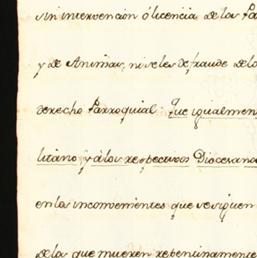 sin intervención ó licencia de los Pá
y de Animas, ni se les defraude de lo
derecho Parroquial: Que igualmen
litano y á los respectivos Diocesano
en los inconvenientes que se siguen
de los que mueren repentinamente